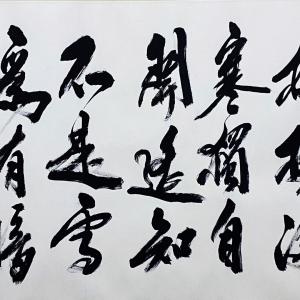 枝梅凌
寒獨自
開遙知
不是雪
爲有暗